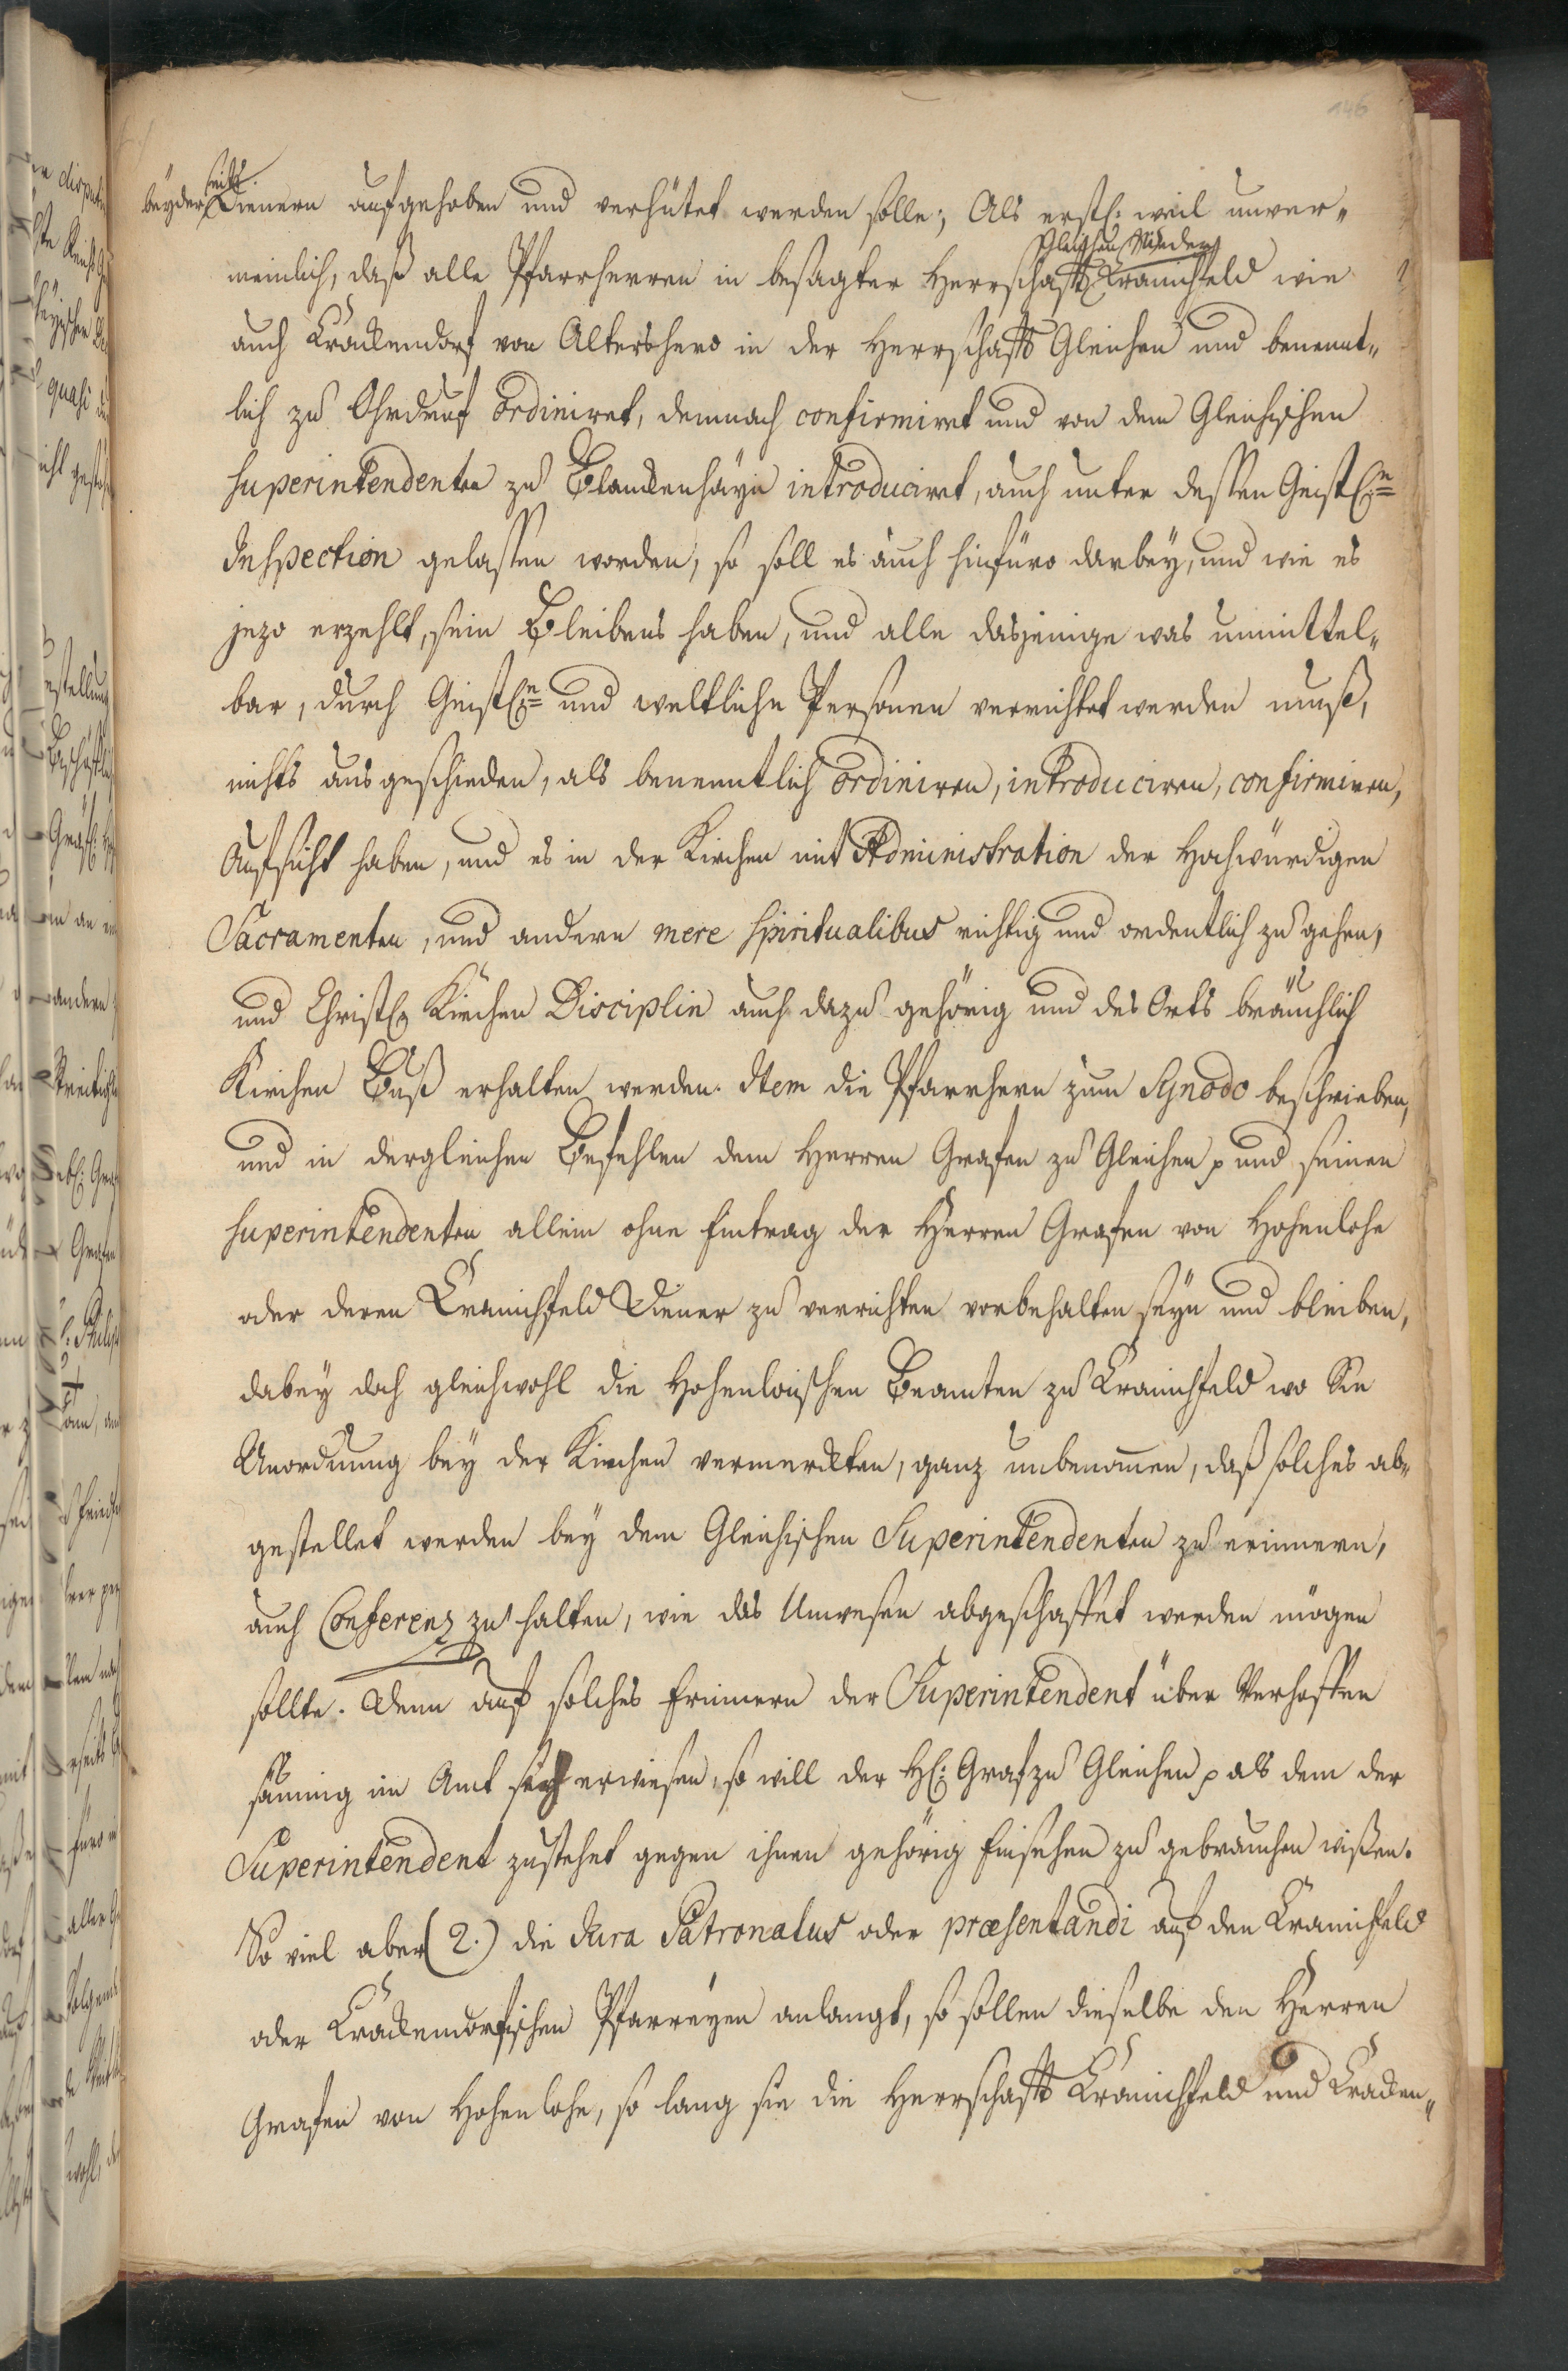 146
beyderseits Dienern aufgehoben und verhütet werden solle; Als erstl: weil unver„
meinlich, daß alle Pfarrherren in besagter Herrschafft Gleichen Nieder Cranichfeld wie
auch Crackendorf von Altershero in der Herrschafft Gleichen und benennt„
lich zu Ohrdruf ordiniret, demnach confirmiret und von dem Gleichischen
Superintendenten zu Blanckenhayn introduciret, auch unter dessen Geistl:n
Inspection gelassen worden, so soll es auch hinfüro darbey, und wie es
jezo erzehlt, sein Bleibens haben, und alle dasjenige was unmittel„
bar, durch Geistl:n und weltliche Personen verrichtet werden muß,
nichts ausgeschieden, als benenntlich ordiniren, introduciren, confirmiren,
Aufsicht haben, und es in der Kirchen mit Administration der Hochwürdigen
Sacramenten, und andern mere spiritualibus richtig und ordentlich zu gehen,
und Christl. Kirchen Disciplin auch dazu gehörig und des Orts bräuchlich
Kirchen Buß erhalten werden. Item die Pfarrhern zum Synodo beschrieben,
und in dergleichen Befehlen dem Herren Grafen zu Gleichen p und seinen
Superintendenten allein ohne Eintrag der Herren Grafen von Hohenlohe
oder deren Cranichfeld Diener zu verrichten vorbehalten seyn und bleiben,
dabey doch gleichwohl die Hohenloischen Beamten zu Cranichfeld wo Sie
Unordnung bey der Kirchen vermerckten, ganz unbenom̄en, daß solches ab„
gestellet werden bey dem Gleichischen Superintendenten zu erinnern,
auch Conferenz zu halten, wie das Unwesen abgeschaffet werden mögen
sollte. Wenn auf solches Erinnern der Superintendent über Verhoffen
säumig im Amt sich erwiesen, so will der H: Graf zu Gleichen p als dem der
Superintendent zustehet gegen ihnen gehörig Einsehen zu gebrauchen wißen.
So viel aber (2.) die Jura Patronatus oder præsentandi auf den Cranichfeld
oder Crackendorfischen Pfarreyen anlangt, so sollen dieselbe den Herren
Grafen von Hohenlohe, so lang sie die Herrschafft Cranichfeld und Cracken„